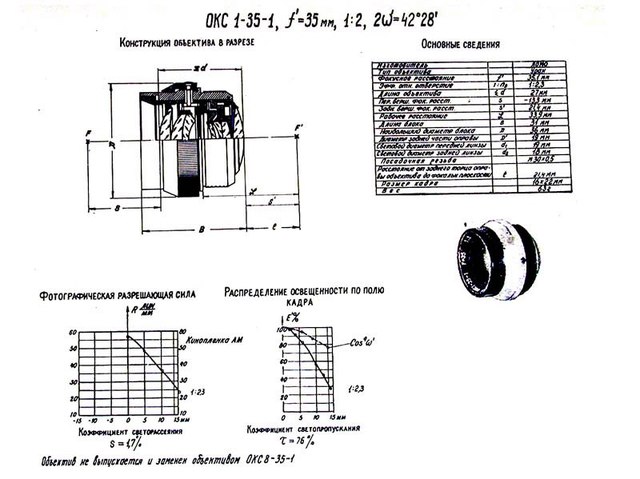 ОКС 1-35-1, f'=35мм, 1:2, 2ω'=42°28'
Конструкция объектива в разрезе
Основные сведения
Изготовитель ЛОМО
Тип объектива
Фокусное расстояние f' 35,1 мм
Эфф. отн. отверстие 1:2,3
Длина объектива 27 мм
Пер. верш. фок. расст. S
Задн. верш. фок. расст. S' 21,4 мм
Рабочее расстояние 33,9 мм
Длина блока B 31 мм
Наибольший диаметр блока D 36 мм
Диаметр задней части оправы D' 19 мм
Световой диаметр передней линзы d₁ 19 мм
Световой диаметр задней линзы d₂ 18 мм
Посадочная резьба М30×0,5
Расстояние от заднего торца опра-
вы объектива до фокальн. плоскости ℓ 21,4 мм
Размер кадра 16×22 мм
Вес 63 г
Σd
F
D
F'
s
B
ℓ
s'
Фотографическая разрешающая сила
R мм
60 50 40 30 20 10
80 60 40 20
Кинопленка АМ
1:2,3
-15 -10 -5 0 5 10 15 мм
Коэффициент светорассеяния
S = 1,7%
Распределение освещенности по полю
кадра
E'%
100 80 60 40 20
Cos⁴ω'
1:2,3
0 5 10 15 мм
Коэффициент светопропускания
τ = 76%
Объектив не выпускается и заменен объективом ОКС 8-35-1